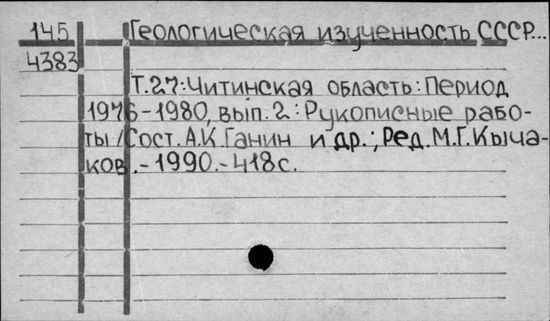 145 Геологическая изученность СССР...
4383
Т.27: Читинская область: Период
1976-1980, вып. 2: Рукописные рабо-
ты / Сост. А.К. Ганин и др.; Ред. М.Г. Кыча-
ков. - 1990. - 418 с.